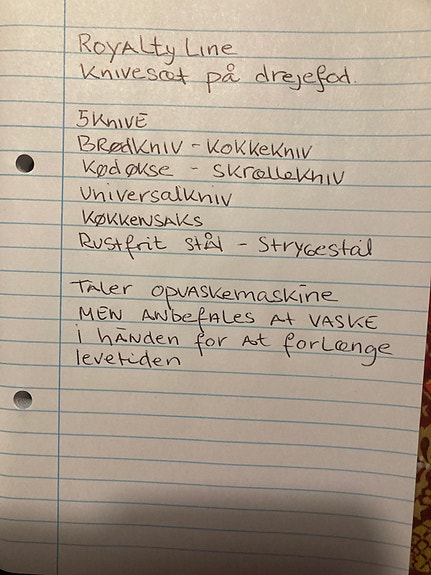 Royalty Line
Knivesæt på drejefod.
5 KNIVE
BRØDKNIV - KOKKEKNIV
KØDØKSE - SKRÆLLEKNIV
UNIVERSALKNIV
KØKKENSAKS
Rustfrit stål - Strygestål
TÅLER OPVASKEMASKINE
MEN ANBEFALES AT VASKE
i hånden for at forlænge
levetiden